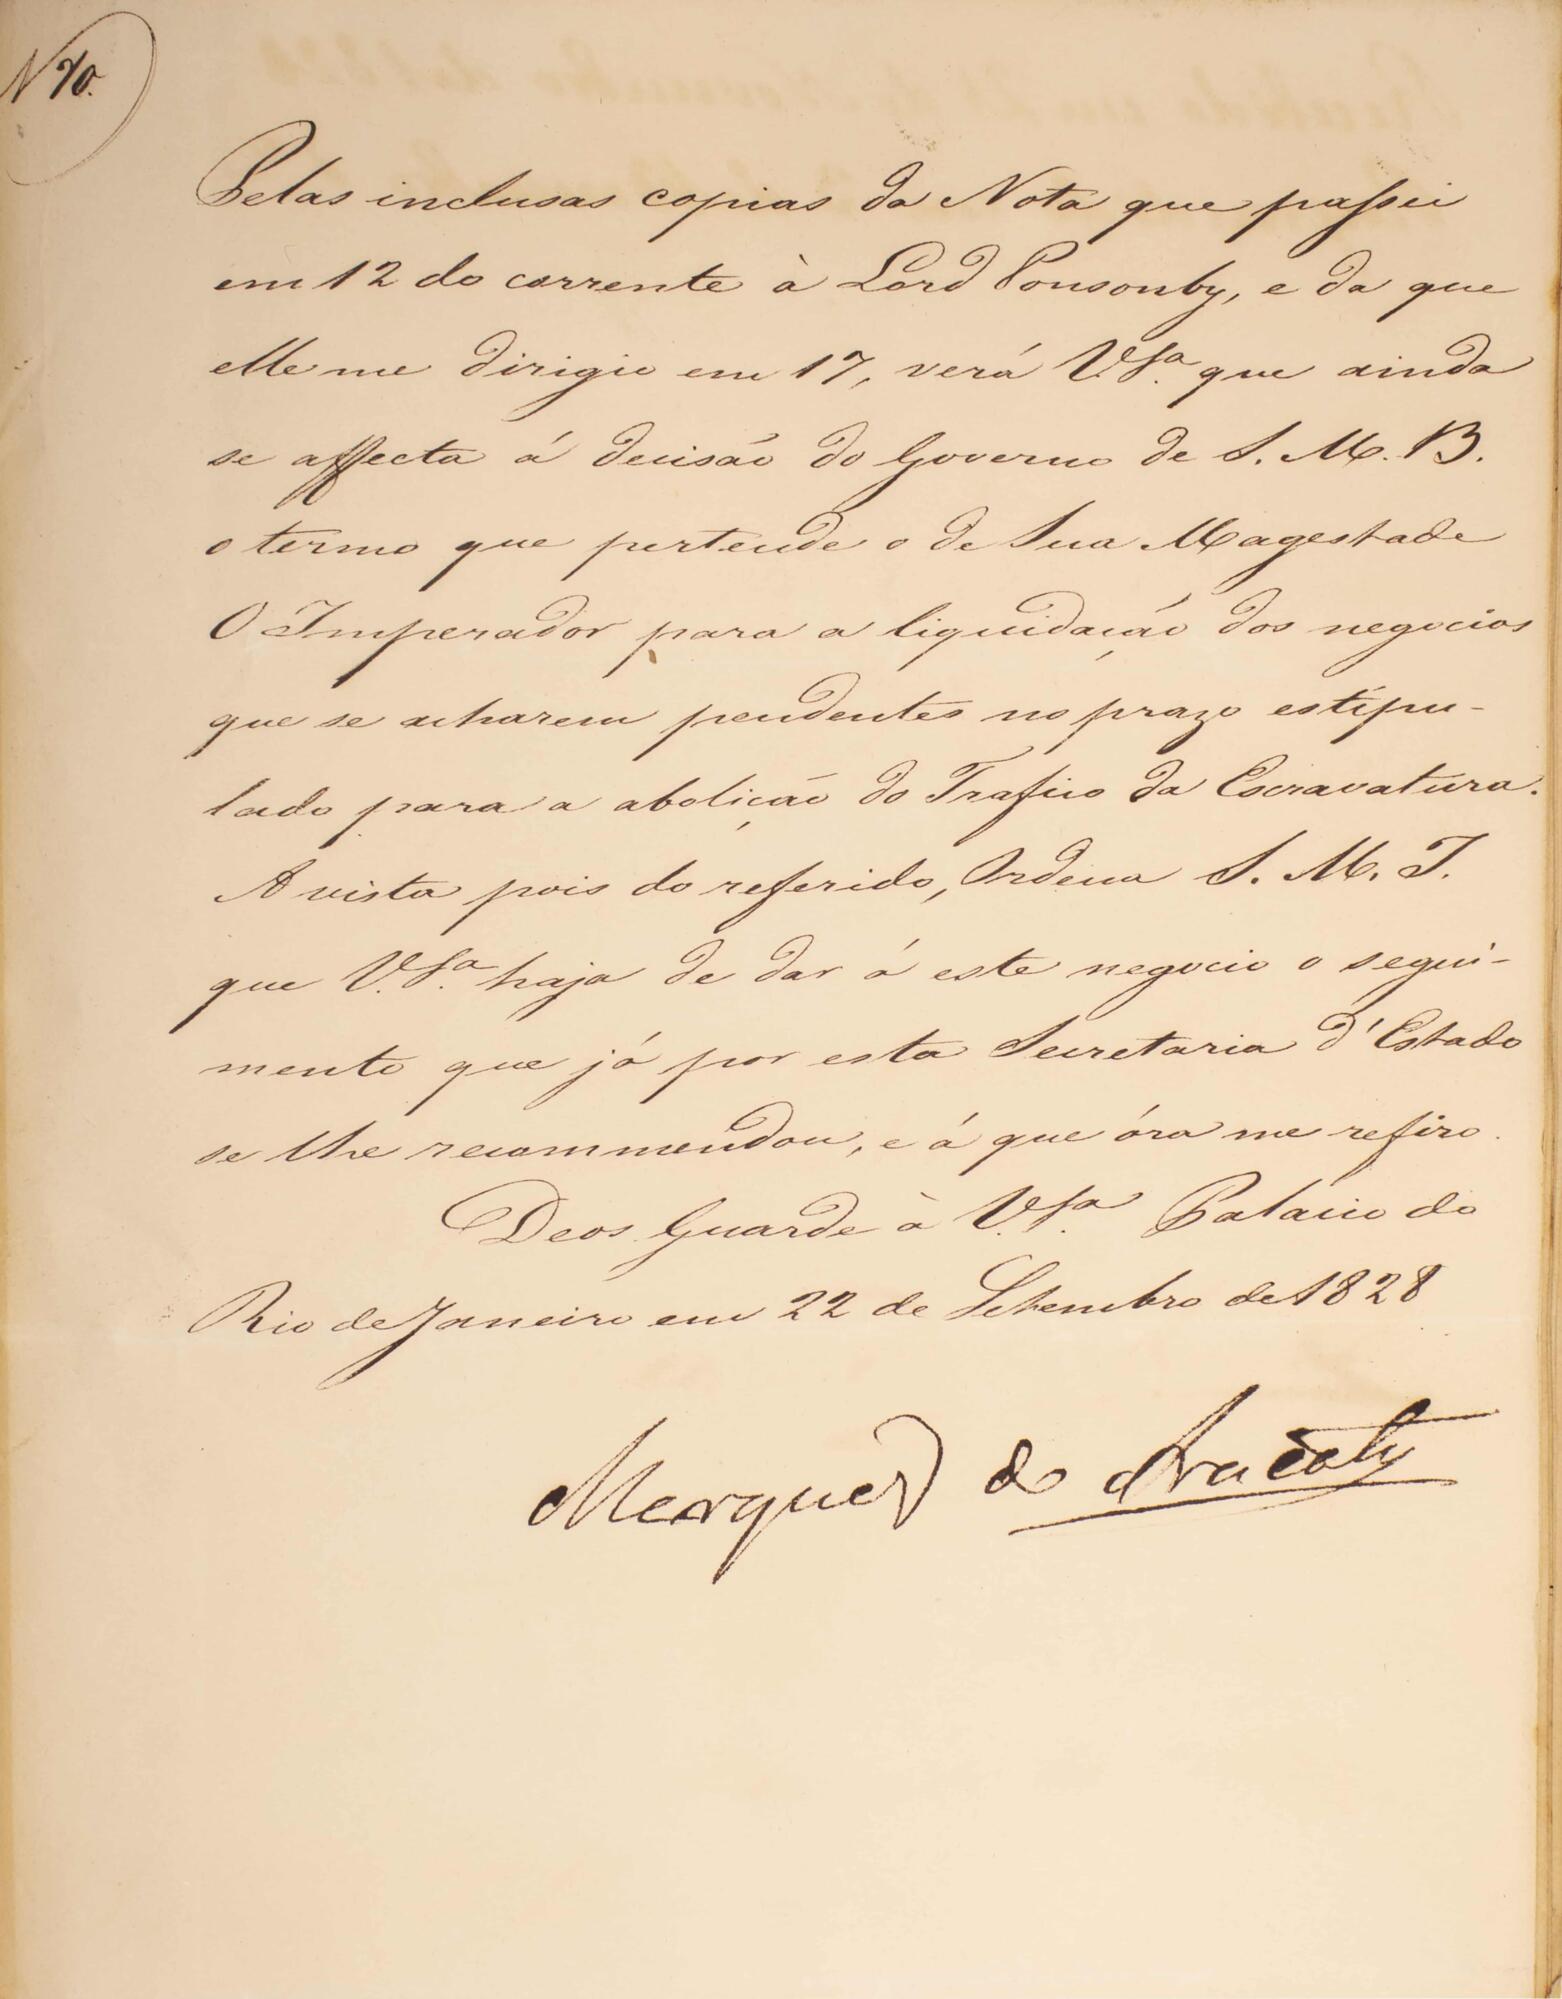 N 70.
Pelas inclusas copias da Nota que passei
em 12 do corrente à Lord Ponsonby, e da que
elle me dirigio em 17, verá V. Sª. que ainda
se affecta á decisão do Governo de S. M. B.
o termo que pertende o de Sua Magestade
O Imperador para a liquidação dos negocios
que se acharem pendentes no prazo estipu-
lado para a abolição do Trafico da Escravatura.
A vista pois do referido, Ordena S. M. I.
que V. Sª. haja de dar á este negocio o segui-
mento que já por esta Secretaria d'Estado
se lhe recommendou, e á que óra me refiro.
Deos Guarde à V. Sª. Palacio do
Rio de Janeiro em 22 de Setembro de 1828
Marquez do Aracaty